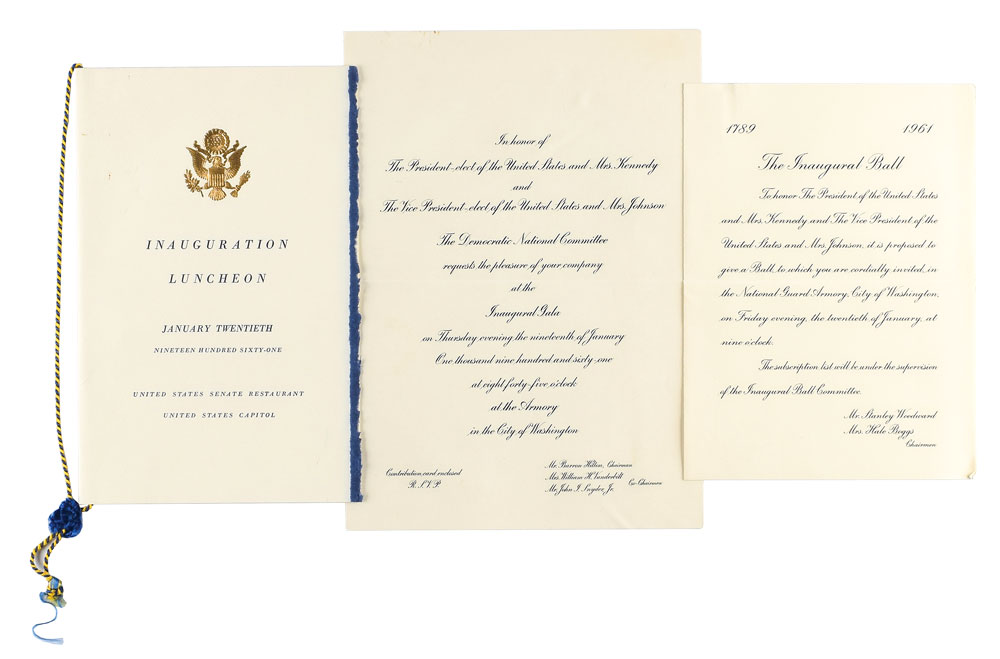 INAUGURATION
LUNCHEON
JANUARY TWENTIETH
NINETEEN HUNDRED SIXTY-ONE
UNITED STATES SENATE RESTAURANT
UNITED STATES CAPITOL
In honor of
The President-elect of the United States and Mrs. Kennedy
and
The Vice President-elect of the United States and Mrs. Johnson
The Democratic National Committee
requests the pleasure of your company
at the
Inaugural Gala
on Thursday evening, the nineteenth of January
One thousand nine hundred and sixty-one
at eight forty-five o'clock
at the Armory
in the City of Washington
Contribution card enclosed
R.S.V.P.
Mr. Barron Hilton, Chairman
Mrs. William H. Vanderbilt
Mr. John I. Snyder, Jr.
Co-Chairmen
1789 1961
The Inaugural Ball
To honor The President of the United States
and Mrs. Kennedy and The Vice President of the
United States and Mrs. Johnson, it is proposed to
give a Ball, to which you are cordially invited, in
the National Guard Armory, City of Washington,
on Friday evening, the twentieth of January, at
nine o'clock.
The subscription list will be under the supervision
of the Inaugural Ball Committee.
Mr. Stanley Woodward
Mrs. Hale Boggs
Chairmen